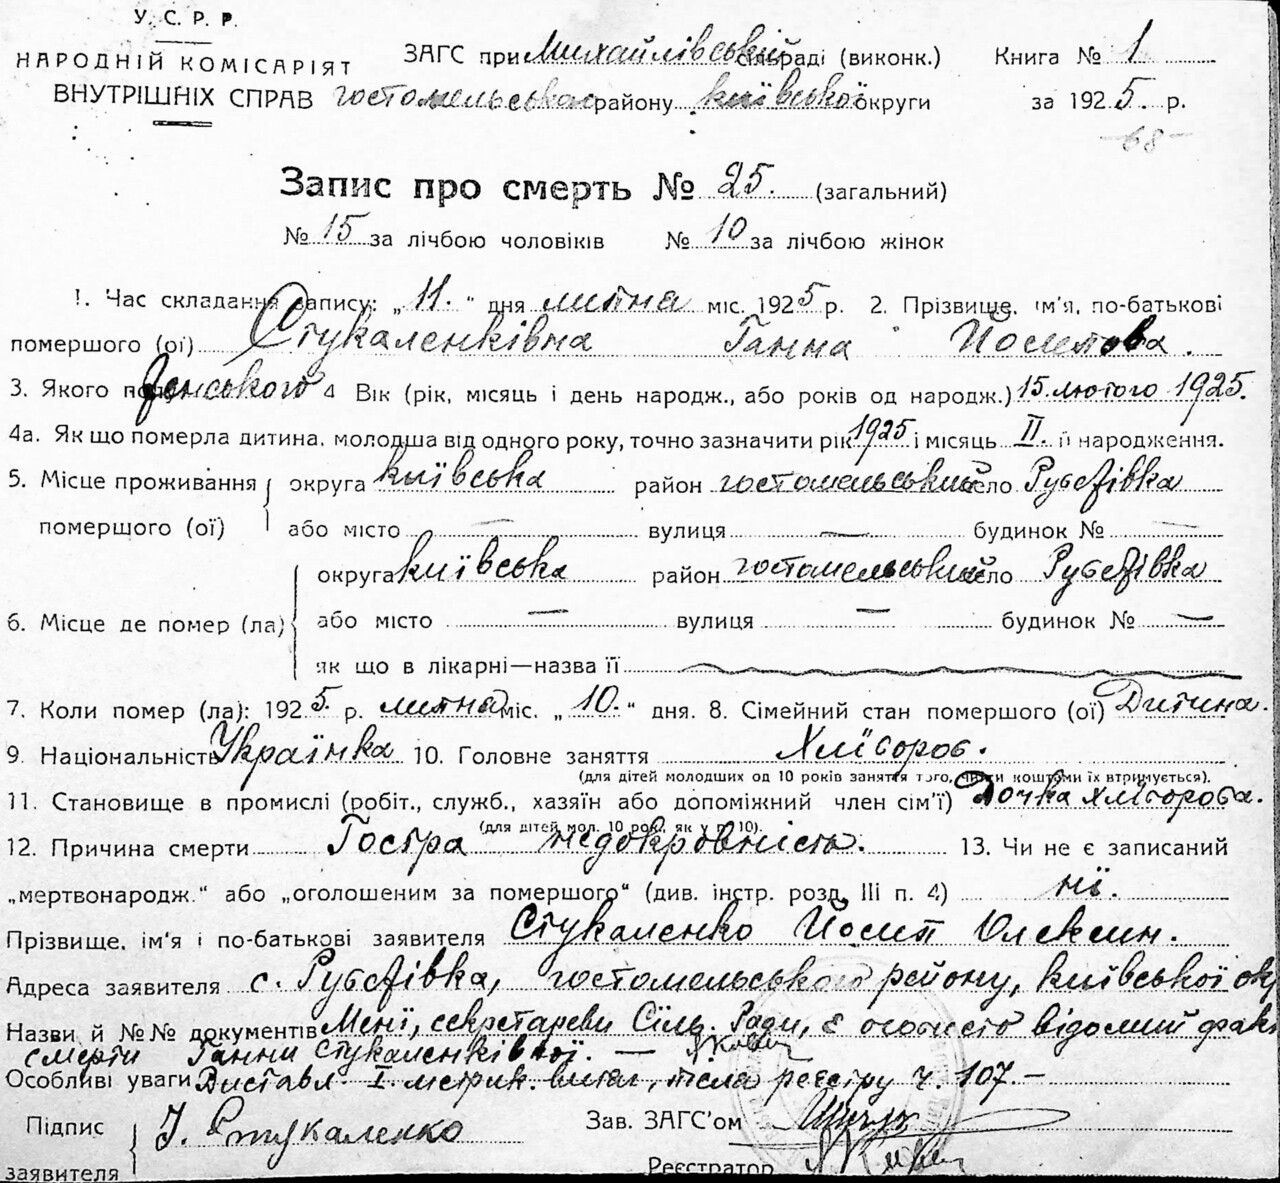 У. С. Р. Р.
НАРОДНІЙ КОМІСАРІЯТ
ВНУТРІШНІХ СПРАВ
ЗАГС при Михайлівській сільраді (виконк.) Книга № 1
гостомельськог району київської округи за 1925. р.
-68-
Запис про смерть № 25. (загальний)
№ 15 за лічбою чоловіків № 10 за лічбою жінок
1. Час складання запису: „11.“ дня липня міс. 1925 р. 2. Прізвище, ім'я, по-батькові
помершого (ої) Стукаленківна Ганна Йосипова.
3. Якого полу женського 4 Вік (рік, місяць і день народж., або років од народж.) 15 лютого 1925.
4а. Як що померла дитина, молодша від одного року, точно зазначити рік 1925 і місяць II. її народження.
5. Місце проживання округа київська район гостомельський село Рубежівка
помершого (ої) або місто — вулиця — будинок № —
округа київська район гостомельський село Рубежівка
6. Місце де помер (ла) або місто — вулиця — будинок № —
як що в лікарні—назва її
7. Коли помер (ла): 1925. р. липня міс. „10.“ дня. 8. Сімейний стан помершого (ої) Дитина.
9. Національність Українка 10. Головне заняття Хлїбороб.
(для дітей молодших од 10 років заняття того, чиїми коштами їх втримується).
11. Становище в промислі (робіт., служб., хазяїн або допоміжний член сім'ї) Дочка хлїбороба.
(для дітей мол. 10 рок., як у п. 10).
12. Причина смерти Гостра недокровність. 13. Чи не є записаний
„мертвонародж.“ або „оголошеним за помершого“ (див. інстр. розд. III п. 4) нї.
Прізвище, ім'я і по-батькові заявителя Стукаленко Йосип Олексин.
Адреса заявителя с. Рубежівка, гостомельського району, київської окр
Назви й №№ документів Менї, секретареви Сїль. Ради, є особисто відомий факт
смерти Ганни Стукаленківної. —
Особливі уваги Виставл. I. метрик. витяг, реєстру ч. 107.—
Підпис заявителя І. Стукаленко Зав. ЗАГС'ом
Реєстратор